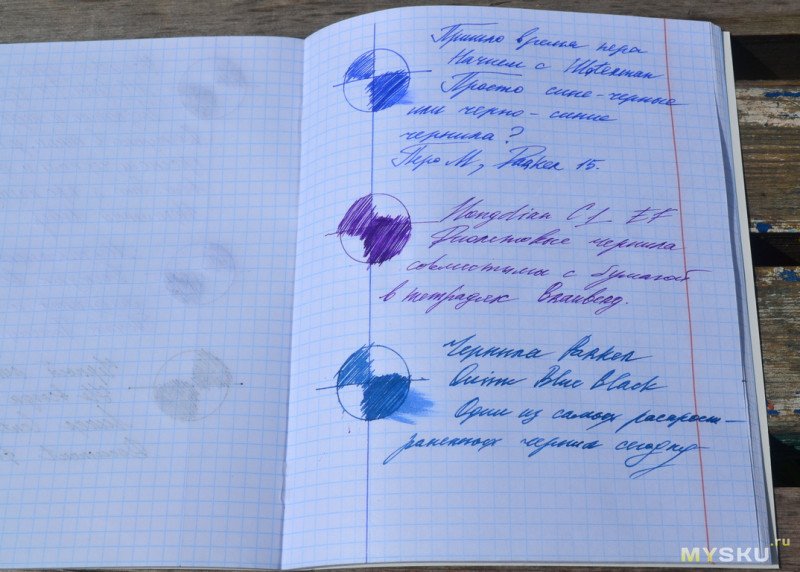 Пришло время пера
Начнем с Waterman
Просто сине-черные
или черно-синие
чернила?
Перо М, Parker 15.
Hongdian C1 EF
Фиолетовые чернила
совместимы с бумагой
в тетрадях
Чернила Parker
Quink Blue Black
Одни из самых распрост-
раненных чернил сегодня
MYSKU.ru